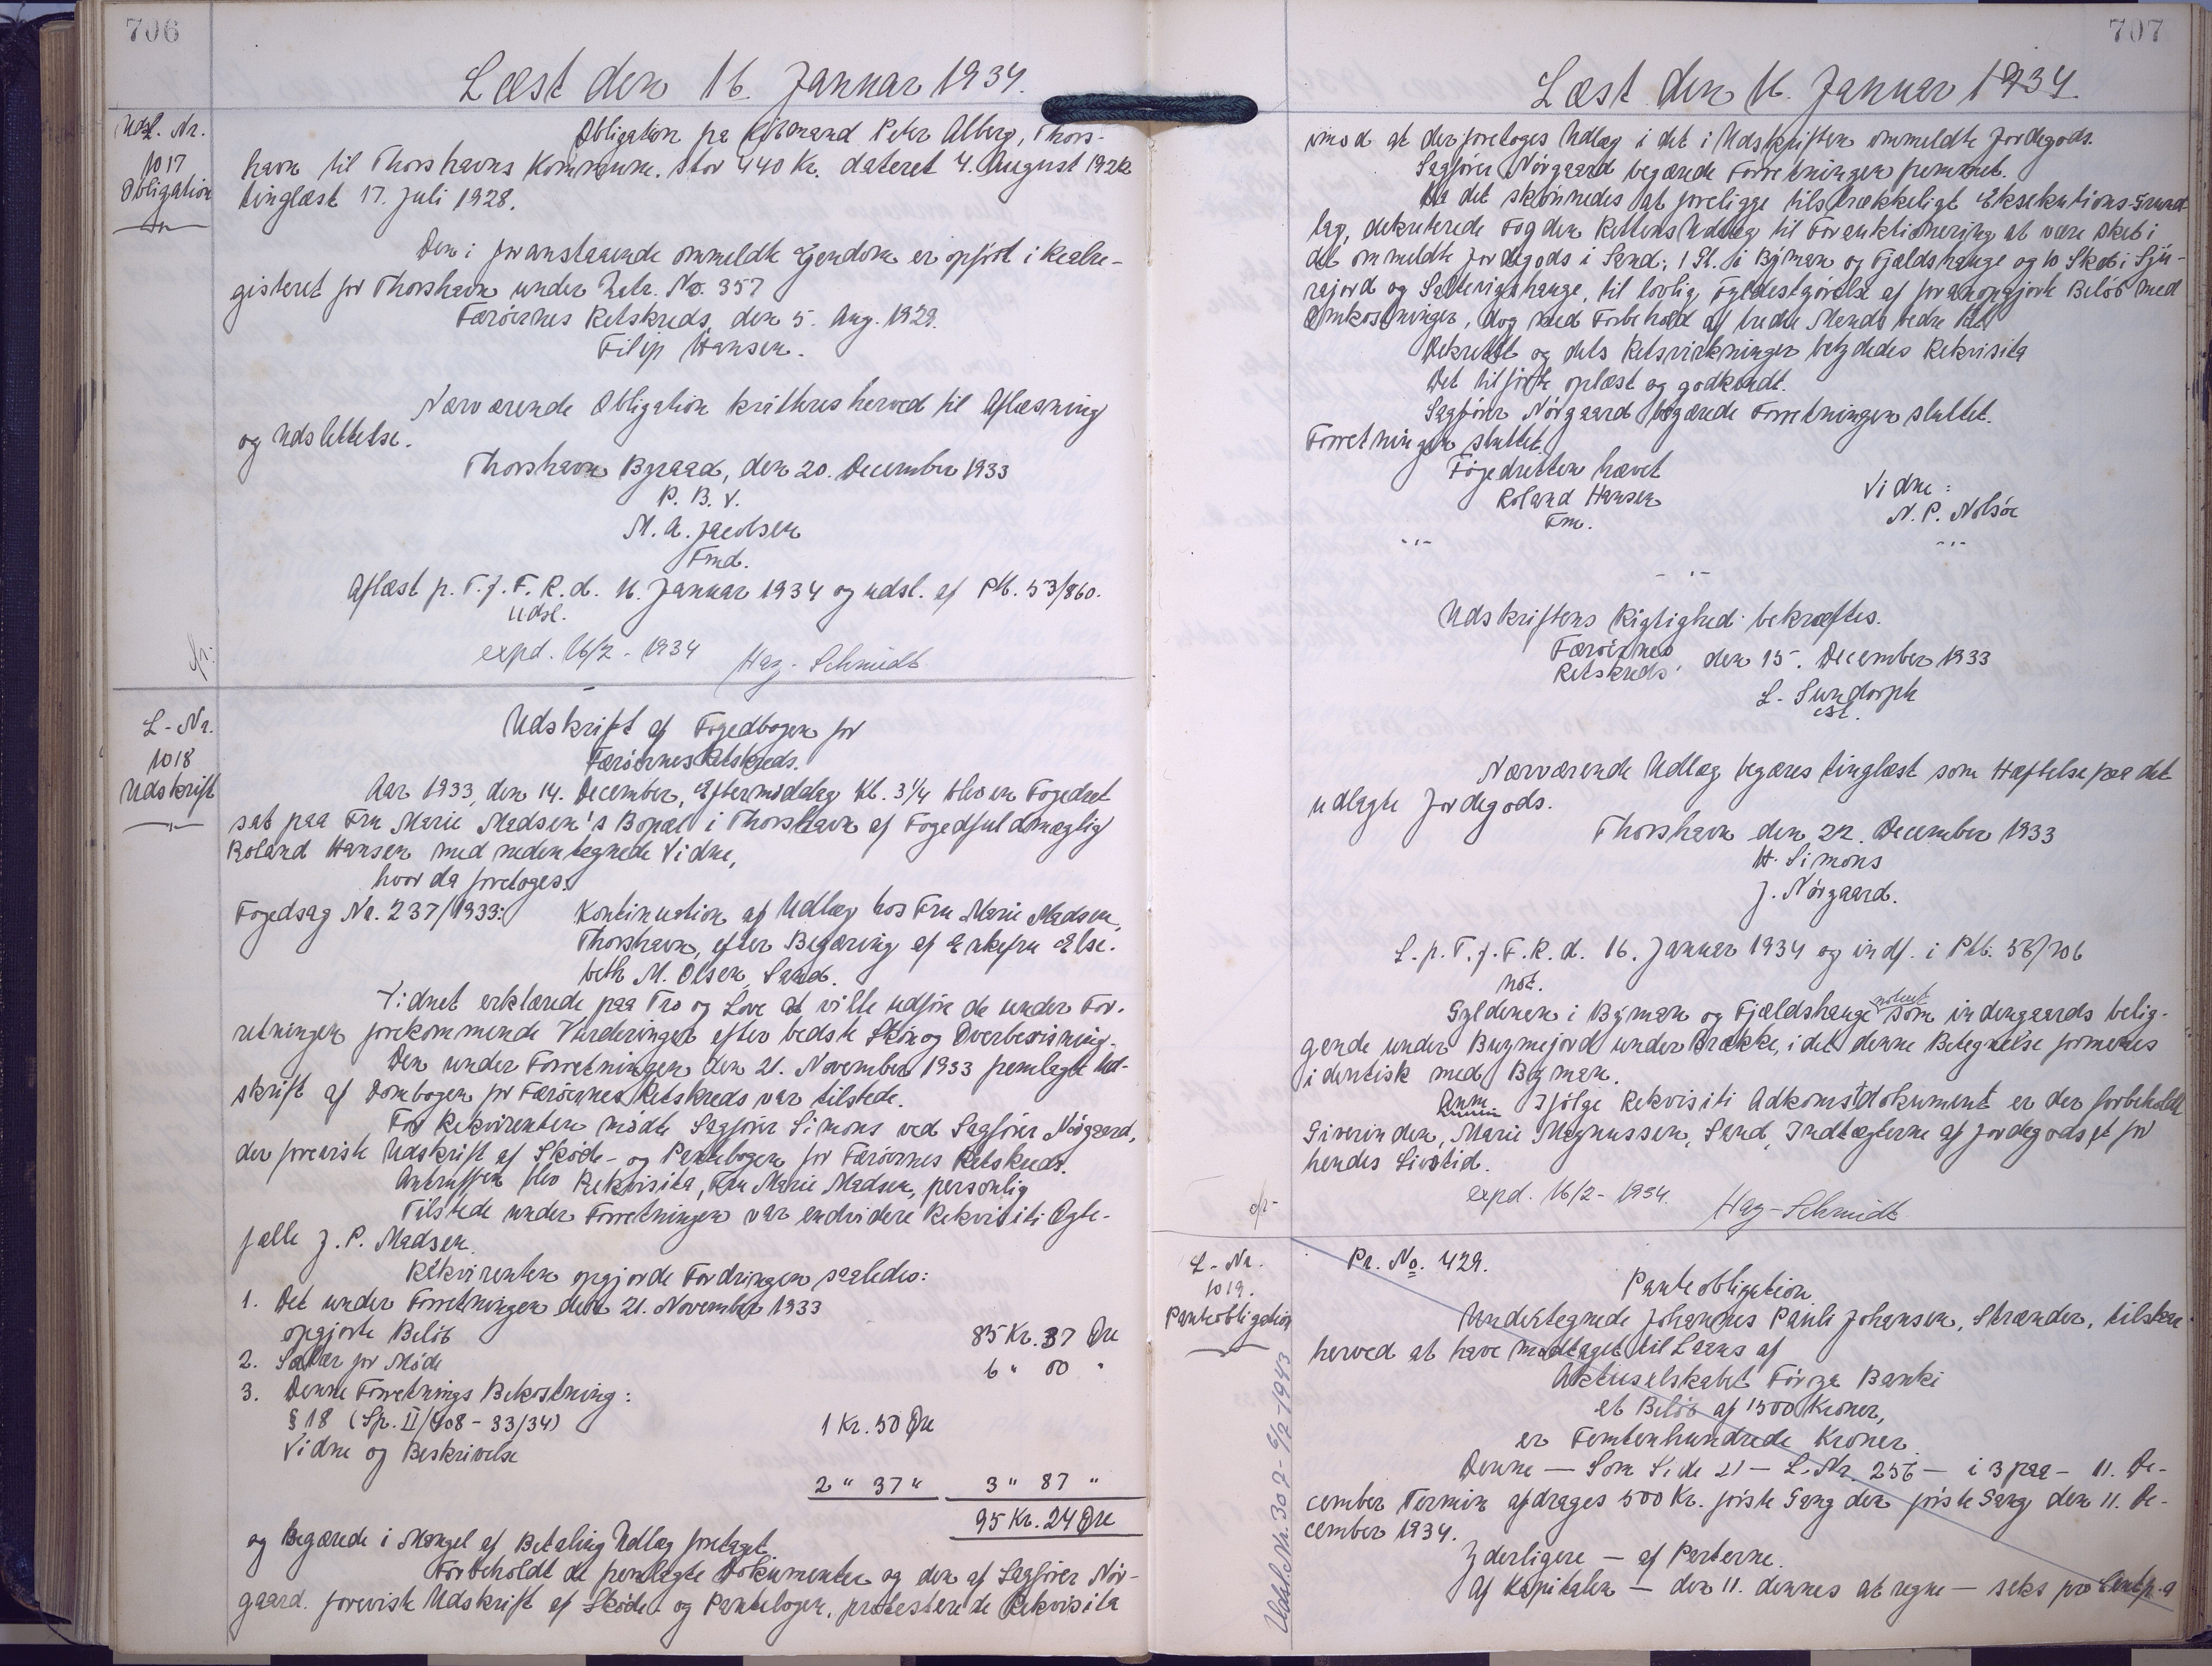 706
Læst den 16. Januar 1934.
Udsl. Nr.
1017
Obligation
Obligation fra Kjøbmand Peter Alberg, Thors-
havn til Thorshavns Kommune. stor 440 Kr. dateret 4. August 192
tinglæst 17. Juli 1928.
Den i foranstaaende ommeldte Ejendom er opført i Realre-
gisteret for Thorshavn under Matr. No. 357
Færøernes Retskreds, den 5. Aug. 1929.
Filip Hansen.
Nærværende Obligation kvitteres herved til Aflæsning
og Udslettelse.
Thorshavn Byraad, den 20. December 1933
P. B. V.
M. A. Jacobsen
Fmd.
Aflæst p. T. f. F. R. d. 16. Januar 1934 og udsl. af Ptb. 53/860.
udsl.
expd. 16/2 - 1934 Hag-Schmidt
L-Nr.
1018
Udskrift
Udskrift af Fogedbogen for
Færøernes Retskreds.
Aar 1933, den 14. December, Eftermiddag Kl. 3 1/4 blev en Fogedret
sat paa Fru Marie Madsen's Bopæl i Thorshavn af Fogedfuldmægtig
Roland Hansen med nedentegnede Vidne,
hvor da foretoges:
Fogedsag Nr. 237/1933: Kontinuation af Udlæg hos Fru Marie Madsen,
Thorshavn, efter Begæring af Enkefru Else-
beth M. Olsen, Sand.
Vidnet erklærede paa Tro og Love at ville udføre de under For-
retningen forekommende Vurderinger efter bedste Skøn og Overbevisning.
Den under Forretningen den 21. November 1933 fremlagte Ud-
skrift af Dombogen for Færøernes Retskreds var tilstede.
For Rekvirenten mødte Sagfører Simons ved Sagfører Nörgaard,
der foreviste Udskrift af Skøde- og Pantebogen for Færøernes Retskreds.
Antruffen blev Rekvisita, Fru Marie Madsen, personlig
Tilstede under Forretningen var endvidere Rekvisiti Ægte-
fælle J. P. Madsen.
Rekvirenten opgjorde Fordringen saaledes:
1. Det under Forretningen den 21. November 1933
opgjorte Beløb 85 Kr. 37 Øre
2. Salær for Møde 6 " 00 "
3. Denne Forretnings Bekostning:
§ 18 (Sp. II/408 - 33/34) 1 Kr. 50 Øre
Vidne og Beskrivelse
2 " 37 " 3 " 87 "
95 Kr. 24 Øre
og Begærede i Mangel af Betaling Udlæg foretaget
Forbeholdt de fremlagte Dokumenter og den af Sagfører Nör-
gaard foreviste Udskrift af Skøde- og Pantebogen, protesterede Rekvisita
707
Læst den 16. Januar 1934.
imod at der foretoges Udlæg i det i Udskriften ommeldte Jordegods.
Sagfører Nörgaard begærede Forretningen fremmet.
Da det skønnedes at foreligge tilstrækkeligt Eksekutions-Grund-
lag, dekreterede Fogden Rettens Udlæg til Forauktionering at være sket i
det ommeldte Jordegods i Sand: 1 Sk. i Býman og Fjældshauge og 10 Skab i Sju-
rajord og Saltvigshauge, til lovlig Fyldestgørelse af foranopgjorte Beløb med
Omkostninger, dog med Forbehold af tredie Mands bedre Ret
Dekretet og dets Retsvirkninger betydedes Rekvisita
Det tilførte oplæst og godkendt.
Sagfører Nörgaard begærede Forretningen sluttet.
Forretningen sluttet
Fogedretten hævet
Roland Hansen
Fm.
Vidne:
N. P. Nolsöe
Udskriftens Rigtighed bekræftes.
Færøernes
Retskreds, den 15. December 1933
L. Sundorph
est.
Nærværende Udlæg begæres tinglæst som Hæftelse paa det
udlagte Jordegods.
Thorshavn den 22. December 1933
H. Simons
J. Nörgaard.
L. p. T. f. F. R. d. 16. Januar 1934 og indf. i Ptb. 56/706
not.
Gyldenen i Býman og Fjældshauge noteret som indengaards belig-
gende under Buymejord under Brække, idet denne Betegnelse formenes
identisk med Býman.
Anm Ifølge Rekvisiti Adkomstdokument er der forbeholdt
Giverinden, Marie Magnussen, Sand, Indtægterne af Jordegodset for
hendes Livstid.
expd. 16/2 - 1934. Hag-Schmidt
L-Nr.
1019.
Panteobligation
Udsl. Nr. 307 - 6/2-1943
Pr. No. 429.
Panteobligation
Undertegnede Johannes Pauli Johansen, Strænder, tilstaar
herved at have modtaget til Laans af
Aktieselskabet Föroya Banki
et Beløb af 1500 Kroner,
er Femtenhundrede Kroner.
Denne — Som Side 21 — L-Nr. 256 — i 3 paa — 11. De-
cember Termin afdrages 500 Kr. første Gang den første Gang den 11. De-
cember 1934.
Yderligere — af Parterne.
Af Kapitalen — den 11. dennes at regne — seks pro Cent p. a